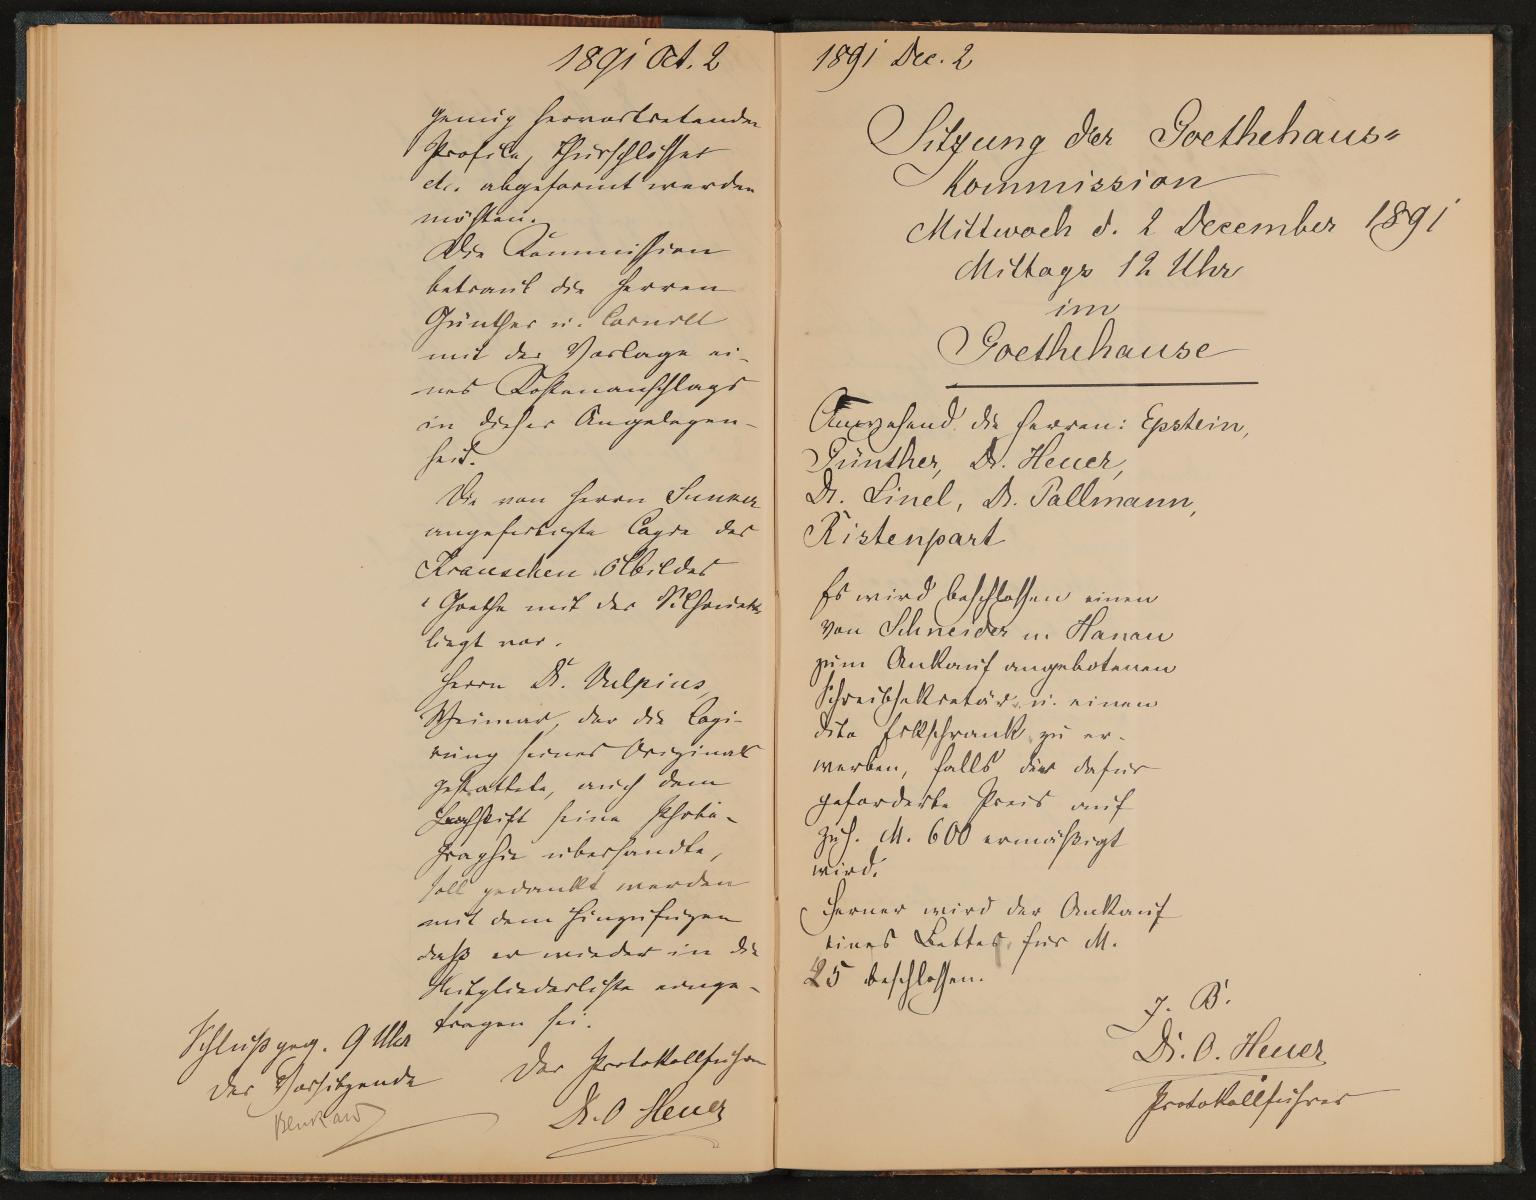 1891 Oct. 2
genug hervortretenden
Profile, Thürschlösser
etc. abgeformt werden
möchten.
Die Kommission
betraut die Herren
Günther u. Cornill
mit der Vorlage ei-
nes Kostenanschlags
in dieser Angelegen-
heit.
Die von Herrn Junker
angefertigte Copie des
Krauschen Ölbildes
Goethe mit der Silhouette
liegt vor.
Herrn Dr. Vulpius,
Weimar, der die Copi-
rung seines Originals
gestattete, auch dem
Hochstift seine Photo-
graphie übersandte,
soll gedankt werden
mit dem Hinzufügen
daß er wieder in die
Mitgliederliste einge-
tragen sei.
Schluß geg. 9 Uhr
Der Vorsitzende
Der Protokollführer
Dr. O Heuer
1891 Dec. 2
Sitzung der Goethehaus-
Kommission
Mittwoch d. 2 December 1891
Mittags 12 Uhr
im
Goethehause
Anwesend die Herren: Epstein,
Günther, Dr. Heuer,
Dr. Linel, Dr. Pallmann,
Ristenpart
Es wird beschlossen einen
von Schneider in Hanau
zum Ankauf angebotenen
Schreibsekretär u. einen
dito Eckschrank zu er-
werben, falls der dafür
geforderte Preis auf
zus. M. 600 ermäßigt
wird.
Ferner wird der Ankauf
eines Bettes für M.
25 beschlossen.
J. B.
Dr. O. Heuer
Protokollführer